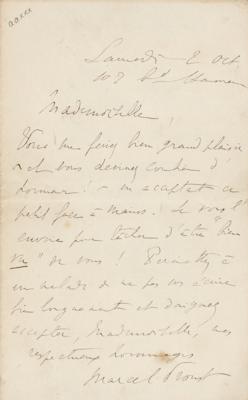 Samedi 2 oct
102 Bd Haussmann
Mademoiselle !
Vous me feriez bien grand plaisir
et vous devinez combien d'
! en acceptant ce
petit à Je vous l'
envoie pour tâcher d'être "bien
vu" de vous ! Permettez à
un malade de ne pas vous écrire
plus longuement et daignez
accepter, Mademoiselle, mes
respectueux hommages
Marcel Proust